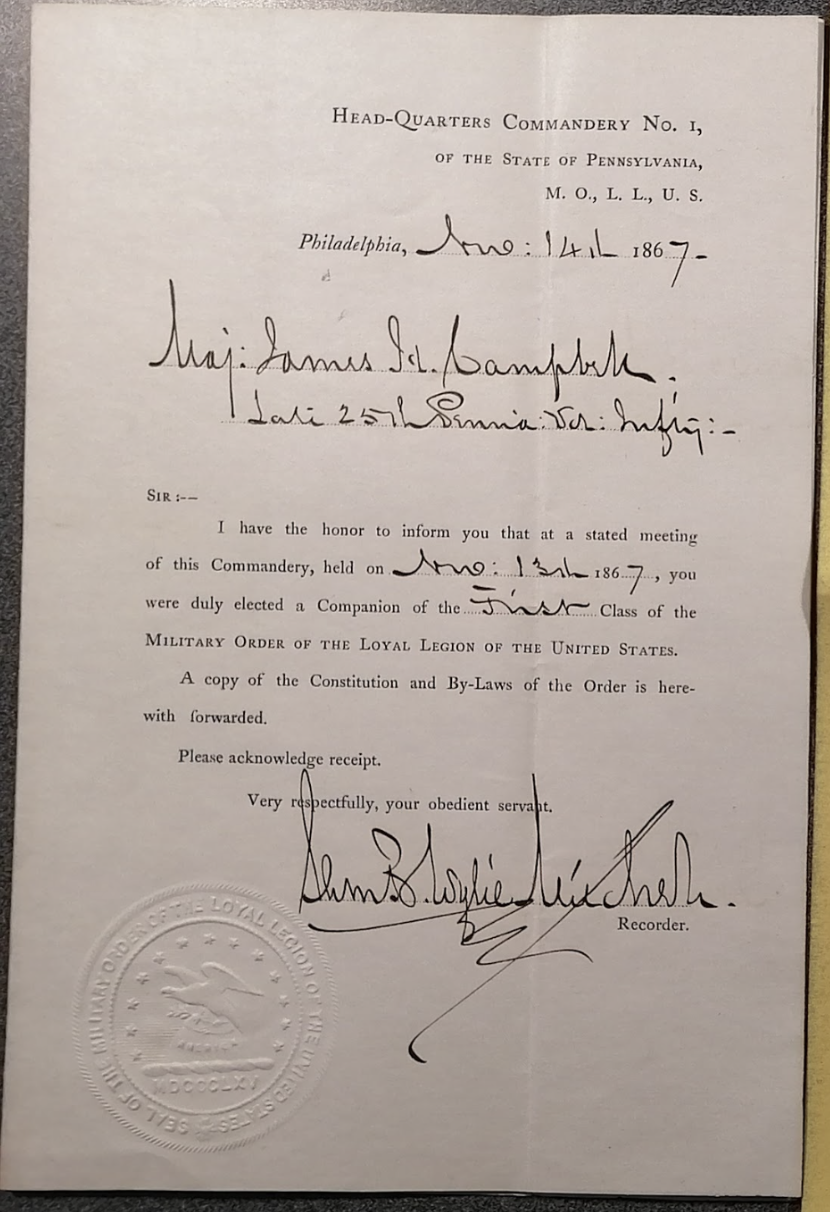 HEAD-QUARTERS COMMANDERY NO. 1,
OF THE STATE OF PENNSYLVANIA,
M. O., L. L., U. S.
Philadelphia, Nov: 14th 1867-
Maj: James H. Campbell.
Late 25th Penna: Vol: Infty:-
SIR :--
I have the honor to inform you that at a stated meeting
of this Commandery, held on Nov: 13th 1867, you
were duly elected a Companion of the First Class of the
MILITARY ORDER OF THE LOYAL LEGION OF THE UNITED STATES.
A copy of the Constitution and By-Laws of the Order is here-
with forwarded.
Please acknowledge receipt.
Very respectfully, your obedient servant.
Saml. B. Wylie Mitchell.
Recorder.
SEAL OF THE MILITARY ORDER OF THE LOYAL LEGION OF THE UNITED STATES
AMERICA
MDCCCLXV